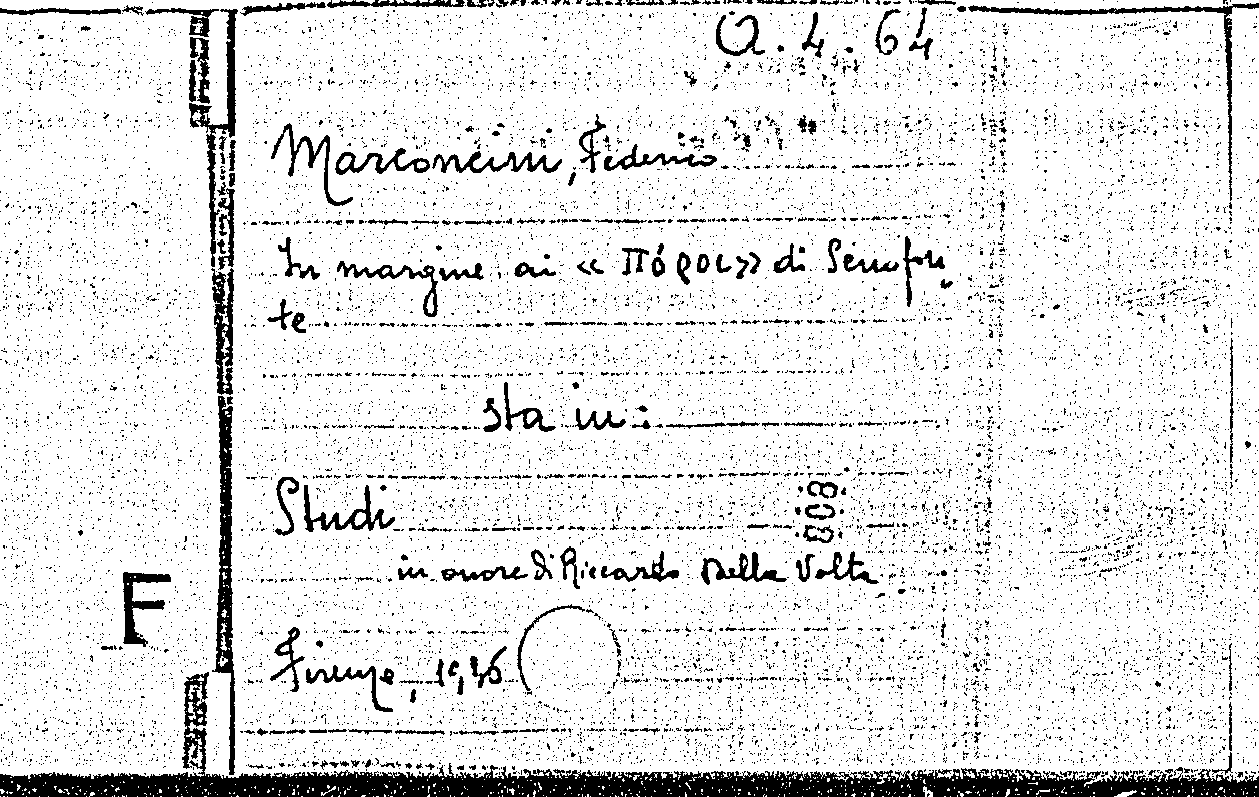 Q.4.64
Marconcini, Federico
In margine ai « Πόροι» di Senofon
te.
sta in:
Studi
808
in onore di Riccardo Dalla Volta
F
Firenze, 1936